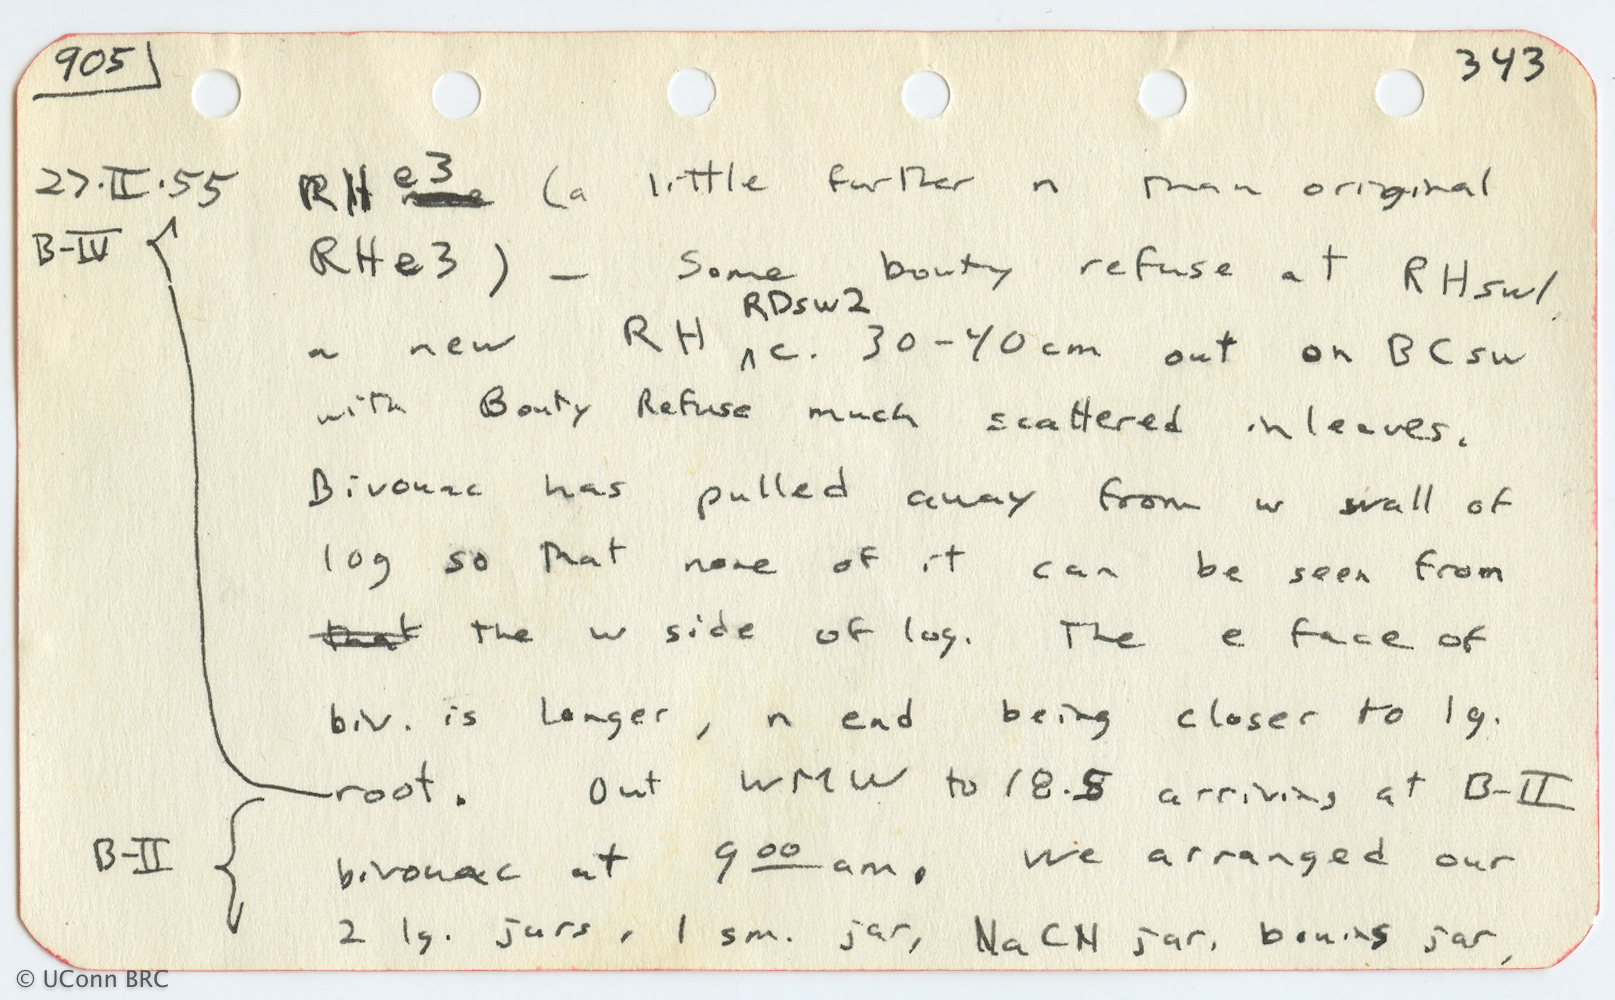 905 343
27·II·55 RH e3 (a little further n than original
B-IV RHe3) — Some bouty refuse at RHsw1,
a new RH RDsw2 c. 30-40cm out on BCsw
with Bouty Refuse much scattered in leaves.
Bivouac has pulled away from w wall of
log so that none of it can be seen from
that the w side of log. The e face of
biv. is longer, n end being closer to lg.
root. Out WMW to 18.5 arriving at B-II
B-II bivouac at 9 00 am. We arranged our
2 lg. jars, 1 sm. jar, NaCN jar, bouins jar,
© UConn BRC